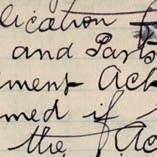 lication
and Parts
ment Act
med if
the Ac